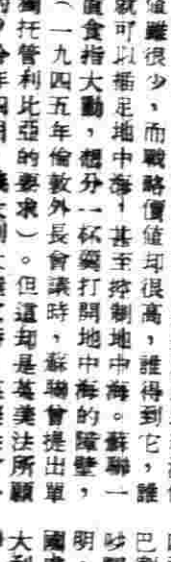 值雖很少，而戰略價值却很高，誰得到它，誰
就可以插足地中海，甚至控制地中海。蘇聯一
直食指大動，想分一杯羹打開地中海的障壁，
（一九四五年倫敦外長會議時，蘇聯曾提出單
獨托管利比亞的要求）。但這却是英美法所願
巴
吵
明，
國
大利